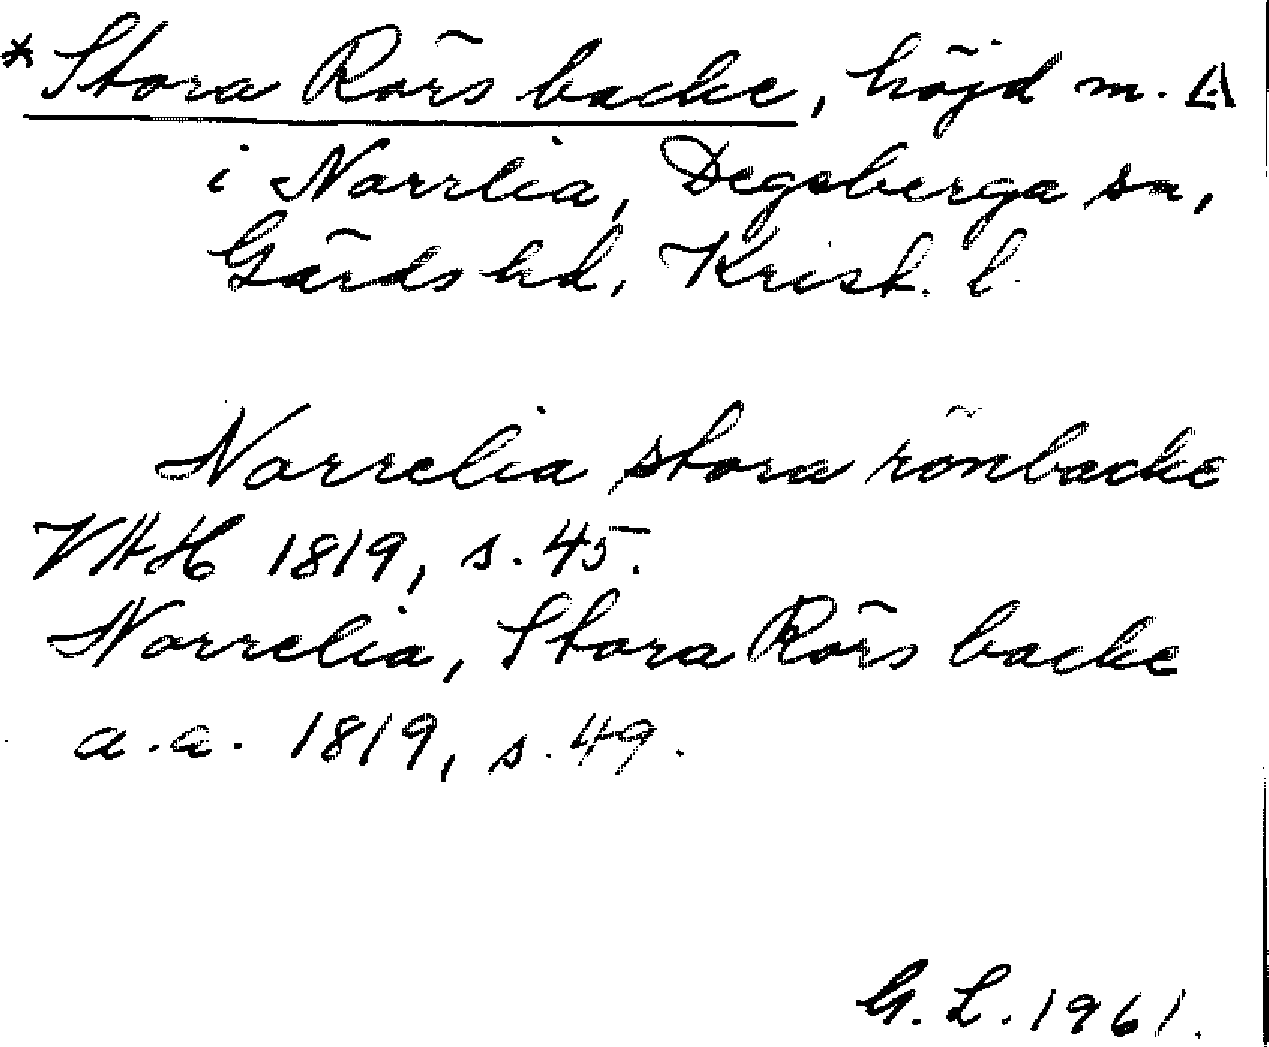 *Stora Rörs backe, höjd m. △
i Norrlia, Degeberga sn,
Gärds hd, Krist. l.
Norrelia stora rönbacke
VAH 1819, s. 45.
Norrelia, Stora Rörs backe
a.a. 1819, s. 49.
G. L. 1961.